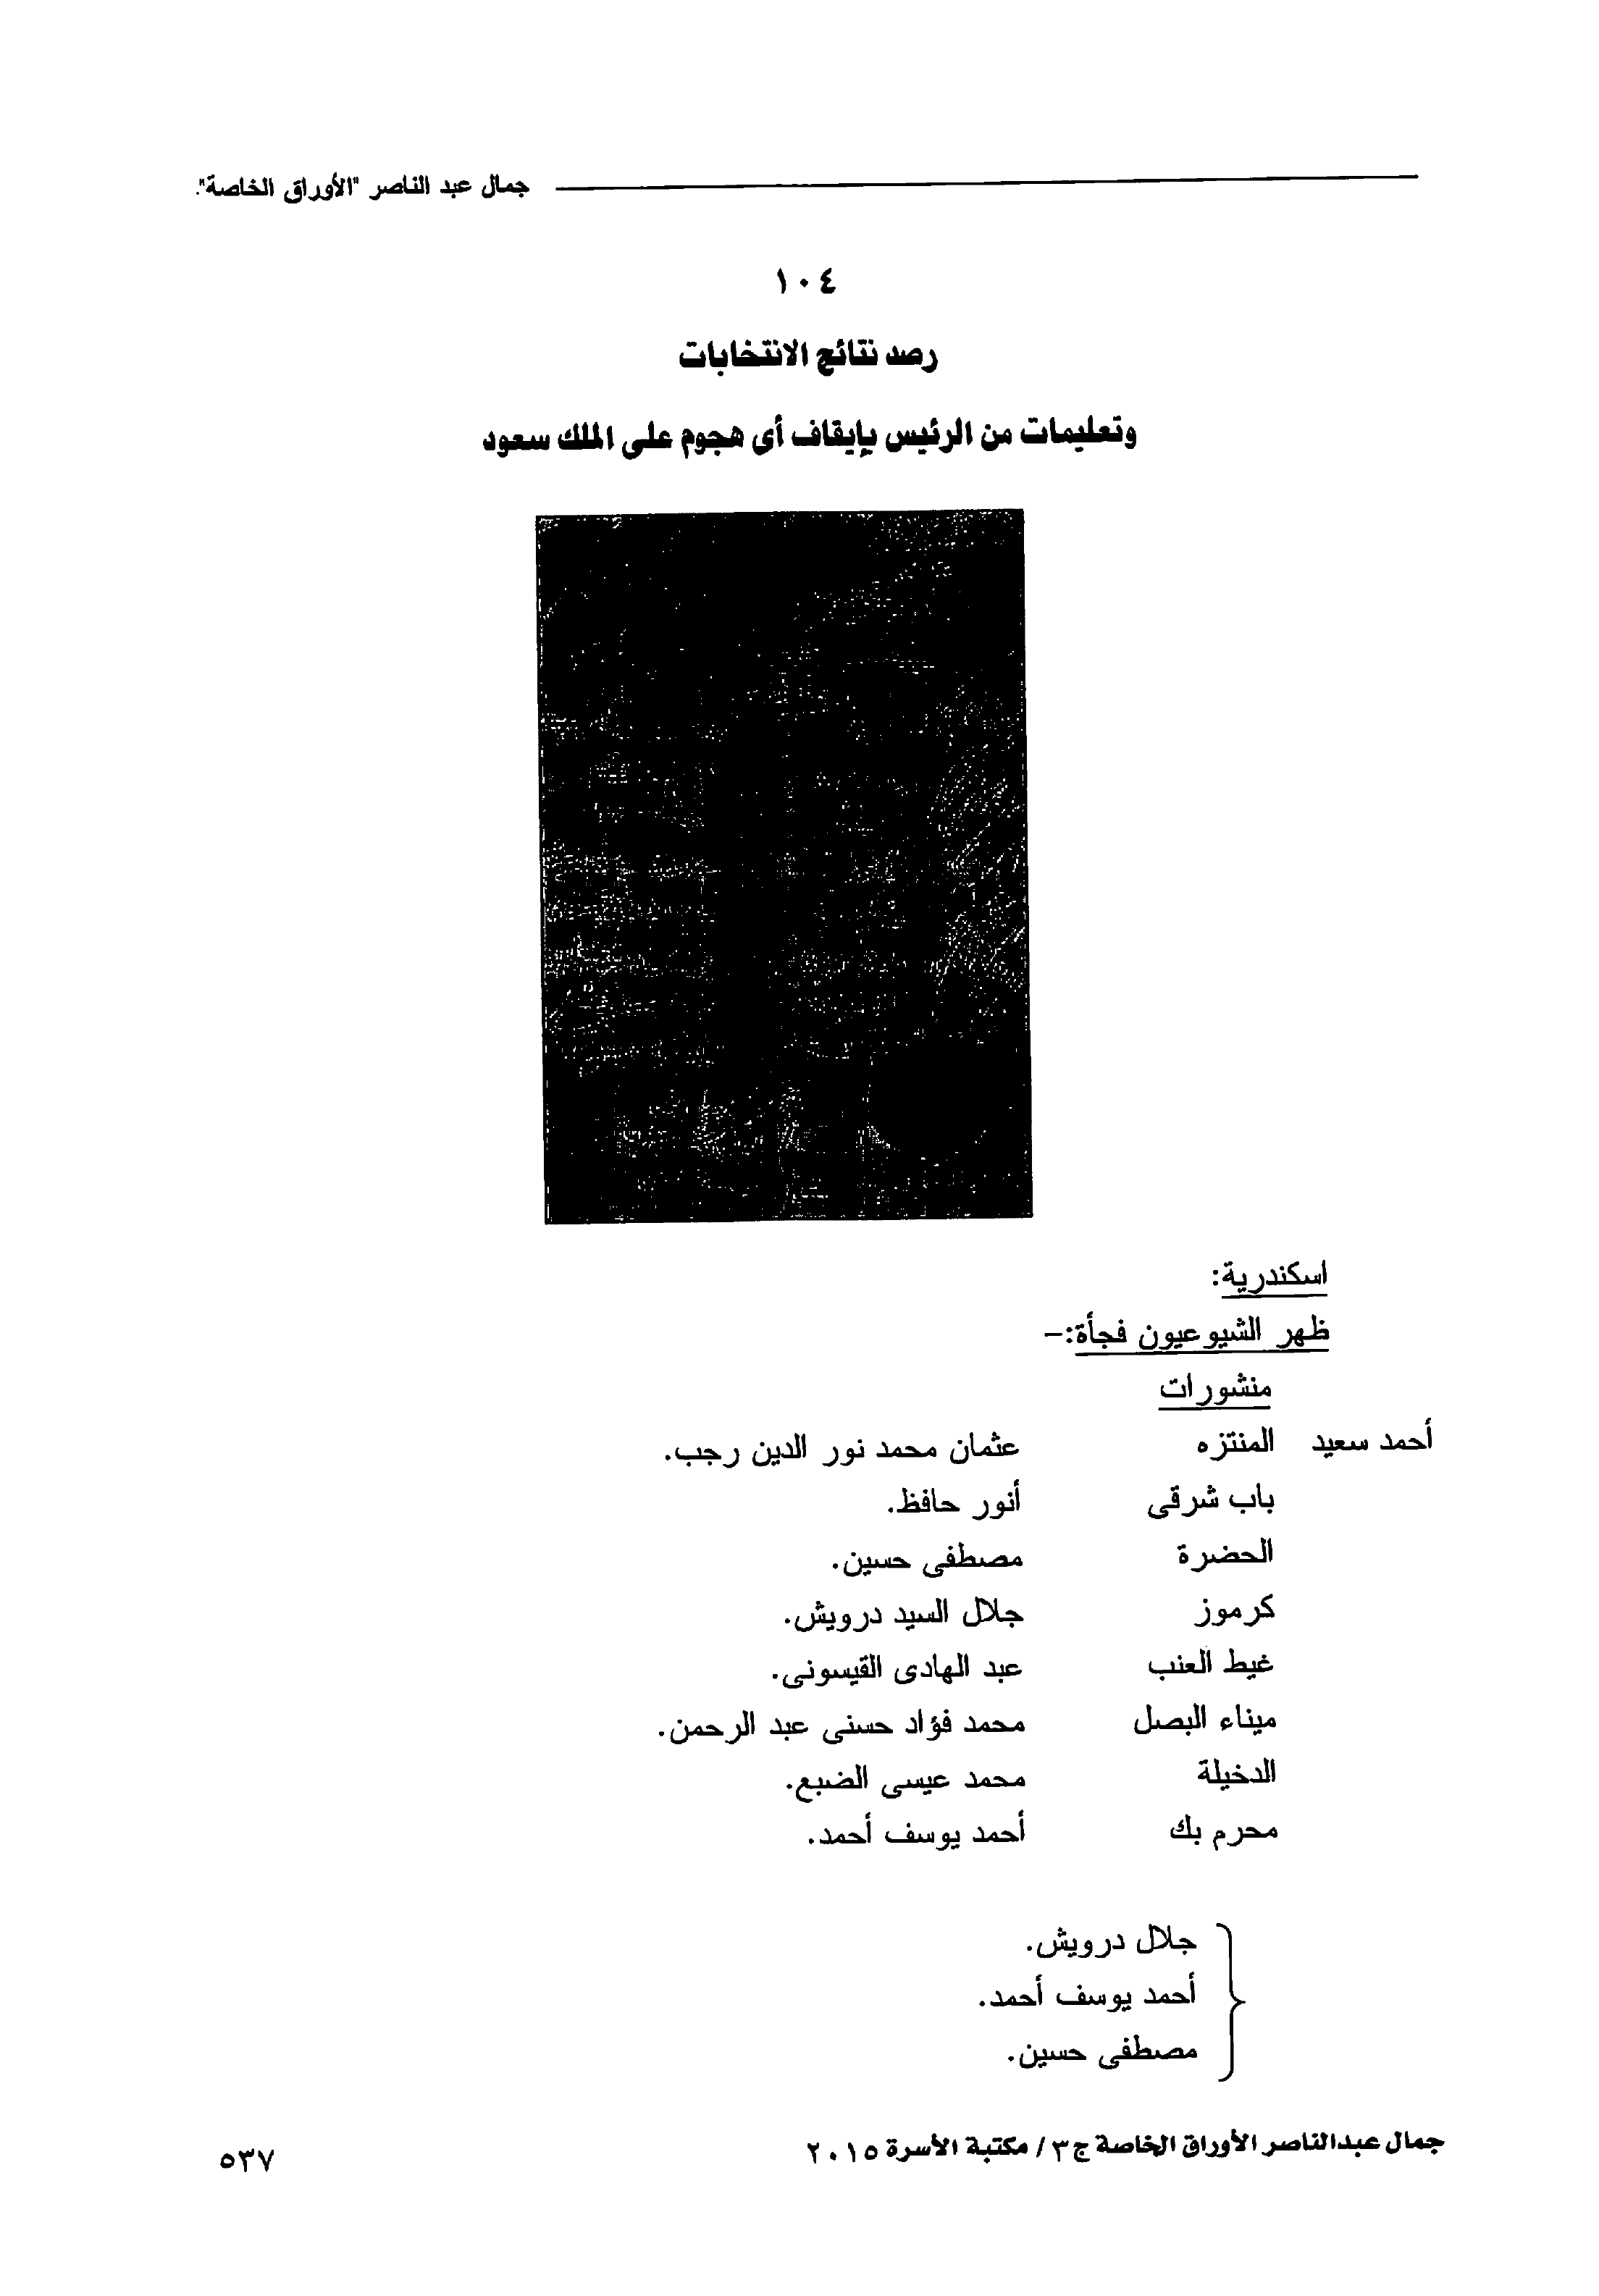 جمال عبد الناصر "الأوراق الخاصة".
١٠٤
رصد نتائج الانتخابات
وتعليمات من الرئيس بإيقاف أى هجوم على الملك سعود
اسكندرية:
ظهر الشيوعيون فجأة:-
منشورات
أحمد سعيد المنتزه عثمان محمد نور الدين رجب.
باب شرقى أنور حافظ.
الحضرة مصطفى حسين.
كرموز جلال السيد درويش.
غيط العنب عبد الهادى القيسونى.
ميناء البصل محمد فؤاد حسنى عبد الرحمن.
الدخيلة محمد عيسى الضبع.
محرم بك أحمد يوسف أحمد.
جلال درويش.
أحمد يوسف أحمد.
مصطفى حسين.
جمال عبدالناصر الأوراق الخاصة ج٣ / مكتبة الأسرة ٢٠١٥
٥٣٧